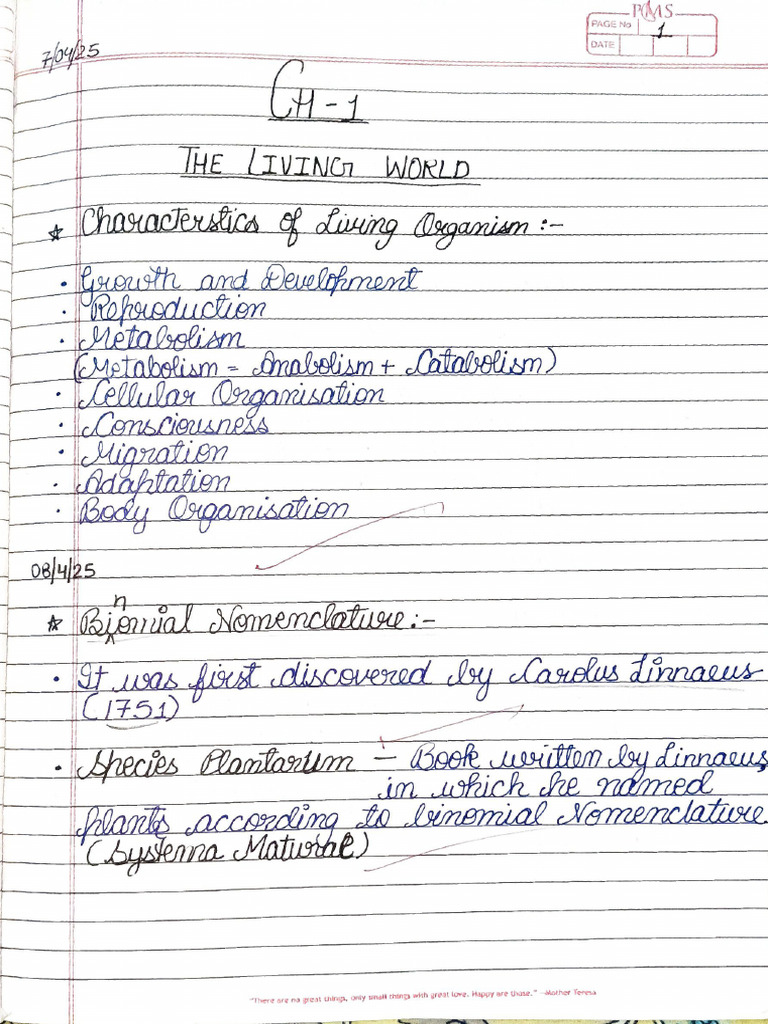 PCMS
PAGE No 1
DATE
7/04/25
CH-1
THE LIVING WORLD
☆ Characterstics of Living Organism :-
• Growth and Development
• Reproduction
• Metabolism
(Metabolism = Anabolism + Catabolism)
• Cellular Organisation
• Consciousness
• Migration
• Adaptation
• Body Organisation
08/4/25
☆ Binomial Nomenclature :-
• It was first discovered by Carolus Linnaeus
(1751)
• Species Plantarum - Book written by Linnaeus,
in which he named
plants according to binomial Nomenclature
(Systema Maturae)
"There are no great things, only small things with great love. Happy are those." -Mother Teresa